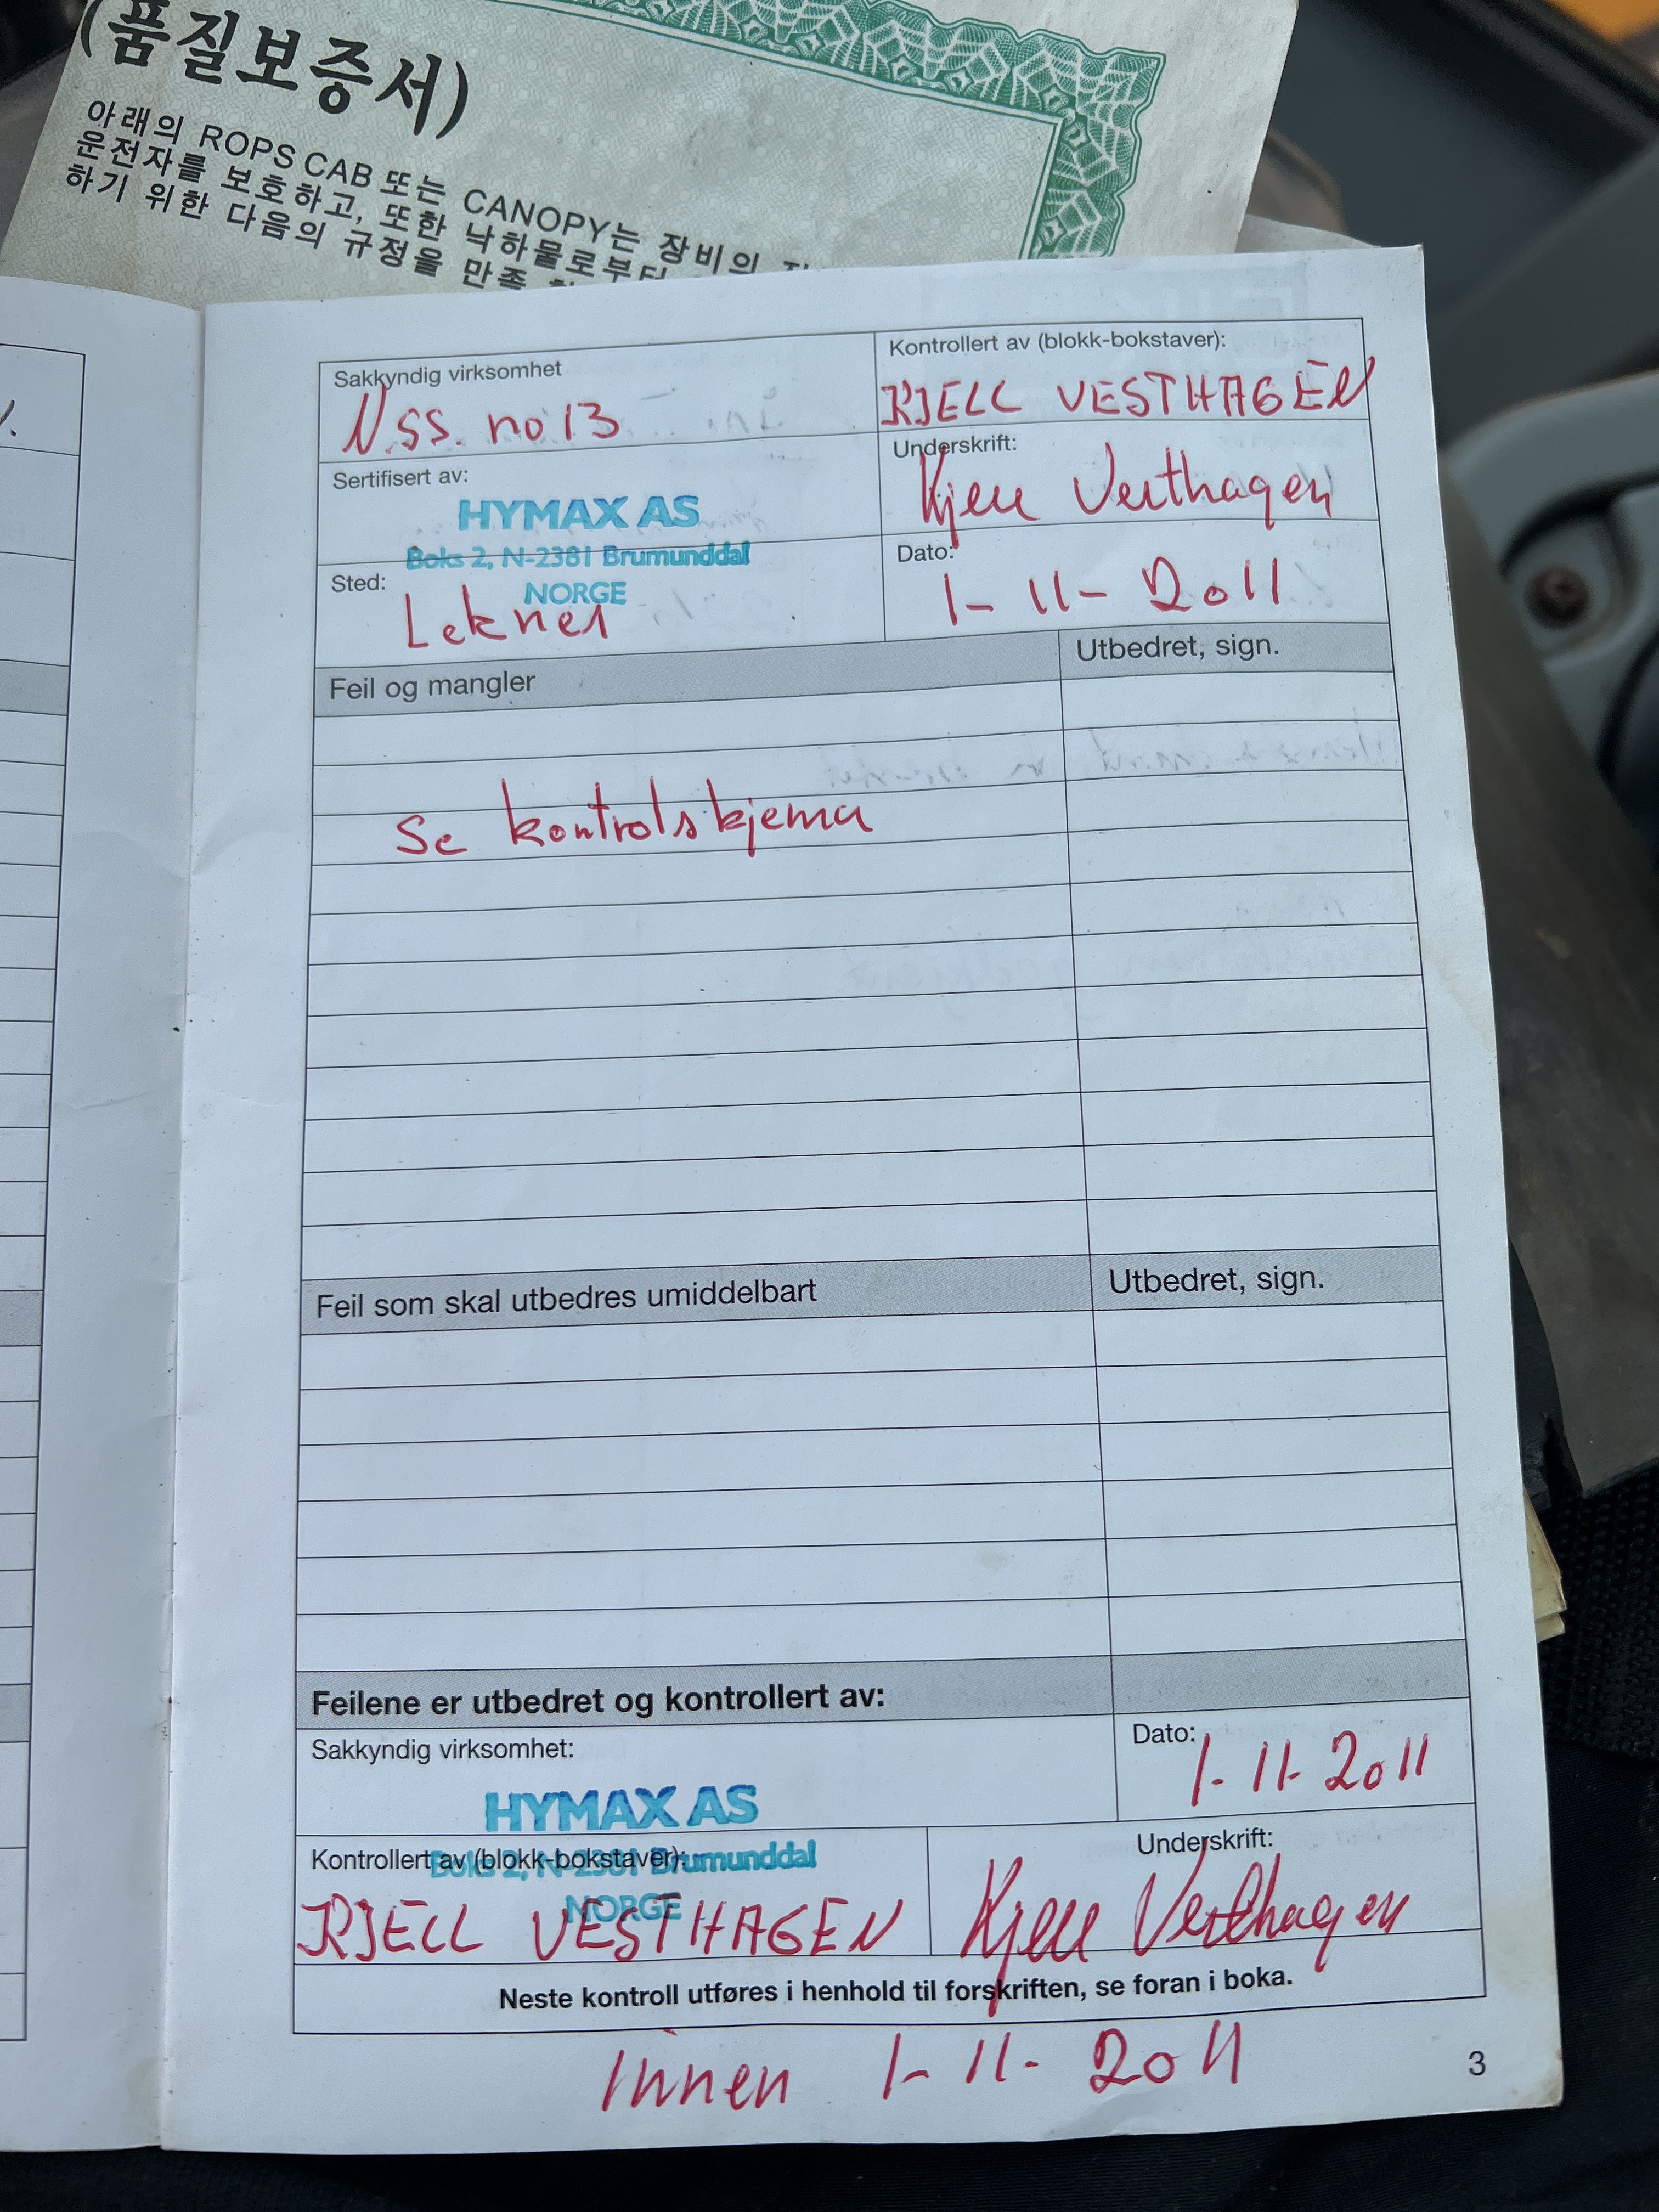 (품질보증서)
아래의 ROPS CAB 또는 CANOPY는 장비의
운전자를 보호하고, 또한 낙하물로부터
하기 위한 다음의 규정을 만족
Sakkyndig virksomhet
Nss. no 13
Kontrollert av (blokk-bokstaver):
KJELL VESTHAGEN
Sertifisert av:
HYMAX AS
Boks 2, N-2381 Brumunddal
NORGE
Underskrift:
Kjell Vesthagen
Sted:
Leknes
Dato:
1-11-2011
Feil og mangler
Utbedret, sign.
Se kontrolskjema
Feil som skal utbedres umiddelbart
Utbedret, sign.
Feilene er utbedret og kontrollert av:
Sakkyndig virksomhet:
HYMAX AS
Boks 2, N-2381 Brumunddal
NORGE
Dato:
1-11-2011
Kontrollert av (blokk-bokstaver):
KJELL VESTHAGEN
Underskrift:
Kjell Vesthagen
Neste kontroll utføres i henhold til forskriften, se foran i boka.
Innen 1-11-2011
3